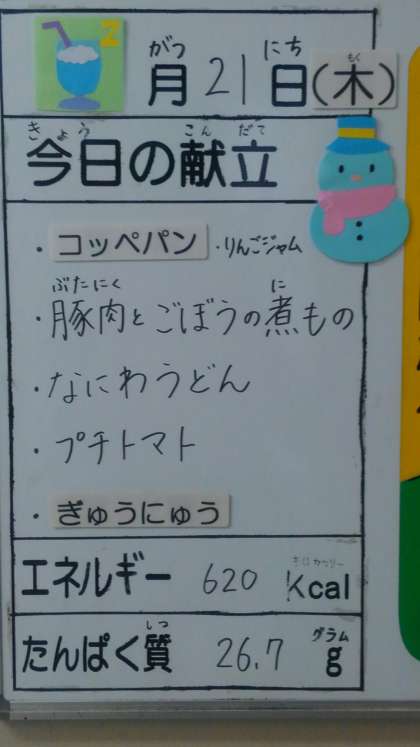 がつ にち もく
月 21 日(木)
きょう こんだて
今日の献立
・コッペパン ・りんごジャム
ぶたにく に
・豚肉とごぼうの煮もの
・なにわうどん
・プチトマト
・ぎゅうにゅう
キロカロリー
エネルギー 620 kcal
しつ グラム
たんぱく質 26.7 g